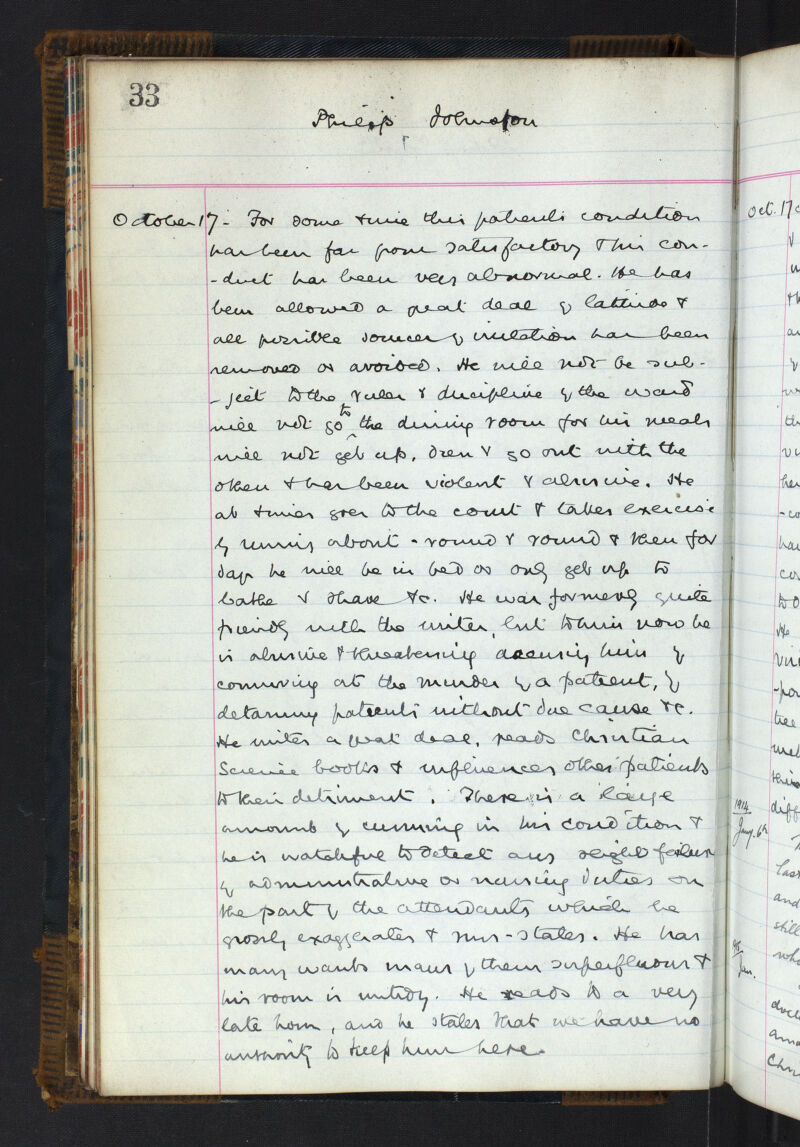 33
Philip Johnston
October 17 - For some time this patient's condition
has been far from satisfactory & his con-
-duct has been very abnormal. He has
been allowed a great deal of latitude &
all possible sources of irritation has been
removed or avoided. He will not be sub-
-ject to the rules & discipline of the ward
will not go to the dining room for his meals
will not get up, dress & go out with the
others & has been violent & abusive. He
at times goes to the court & takes exercise
by running about - round & round & then for
days he will be in bed or only get up to
bathe & shave &c. He was formerly quite
friendly with the writer, but to him now he
is abusive & threatening accusing him of
conniving at the murder of a patient, of
detaining patients without due cause &c.
He writes a great deal, reads Christian
Science books & influences other patients
to their detriment. There is a large
amount of cunning in his condition &
he is watchful to detect any slight failure
of administrative or nursing duties on
the part of the attendants which he
grossly exaggerates & mis-states. He has
many wants many of them superfluous &
his room is untidy. He reads to a very
late hour, and he states that we have no
authority to keep him here.
Oct. 17
1914
Jany. 6th
Jan.